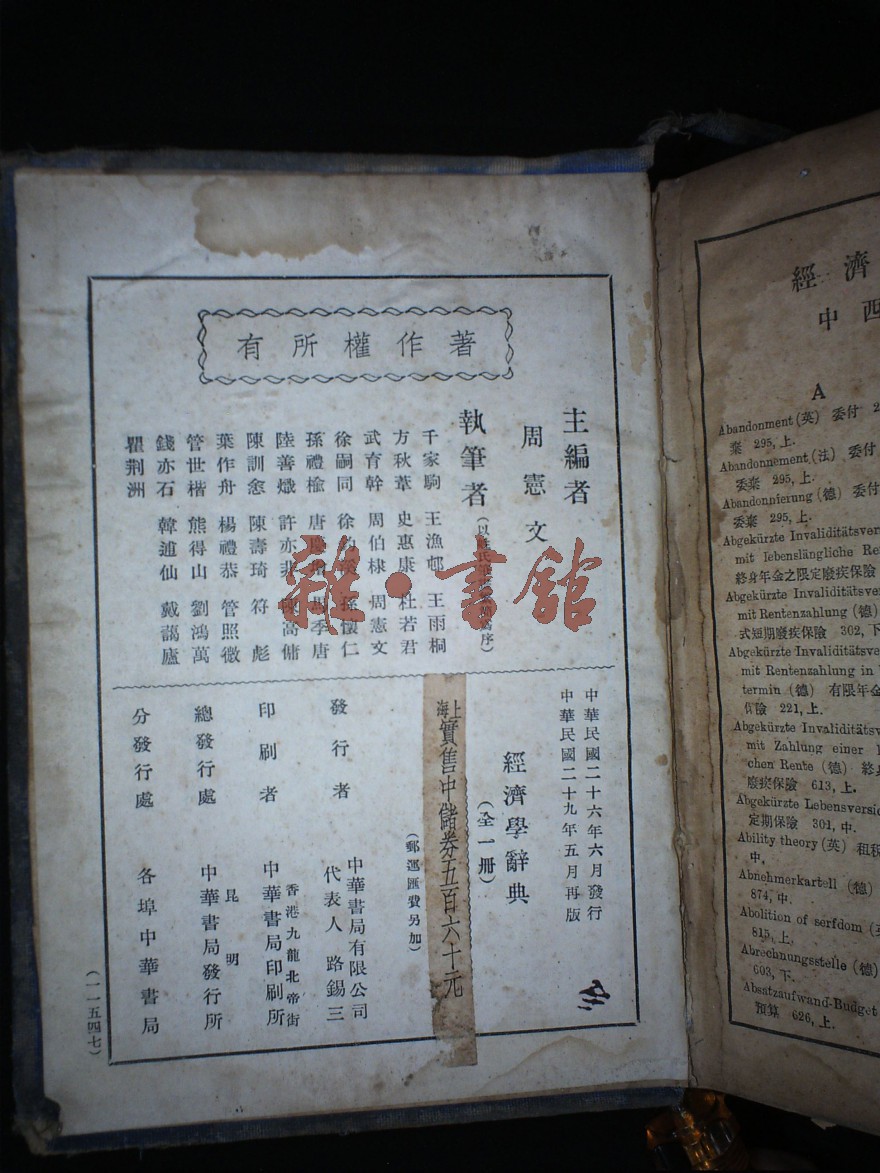 著作權所有
主編者
周憲文
執筆者
千家駒 王漁邨 王雨桐
方秋葦 史惠康 杜若君
武育幹 周伯棣 周憲文
徐嗣同 孫懷仁
孫禮榆 季唐
陸善熾 許亦非 陳高傭
陳訓悆 陳壽琦 符彪
葉作舟 楊禮恭 管照微
管世楷 熊得山 劉鴻萬
錢亦石 韓逋仙 戴藹廬
瞿荆洲
雜·書館
中華民國二十六年六月發行
中華民國二十九年五月再版
經濟學辭典
(全一冊)
上海實售中儲劵五百六十元
(郵運匯費另加)
發行者 中華書局有限公司
代表人 路錫三
印刷者 香港九龍北帝街
中華書局印刷所
總發行處 昆明
中華書局發行所
分發行處 各埠中華書局
(一一五四七)
經濟
中西
A
Abandonment (英) 委付 2
棄 295, 上.
Abandonnement (法) 委付
委棄 295, 上.
Abandonnierung (德) 委付
委棄 295, 上.
Abgekürzte Invaliditätsver
mit lebenslängliche Re
終身年金之限定廢疾保險
Abgekürzte Invaliditätsve
mit Rentenzahlung (德)
式短期廢疾保險 302, 下
Abgekürzte Invaliditätsve
mit Rentenzahlung in
termin (德) 有限年金
保險 221, 上.
Abgekürzte Invaliditätsv
mit Zahlung einer
chen Rente (德) 終身
廢疾保險 613, 上.
Abgekürzte Lebensversic
定期保險 301, 中.
Ability theory (英) 租稅
中.
Abnehmerkartell (德)
874, 中.
Abolition of serfdom (英
815, 上.
Abrechnungsstelle (德)
603, 下.
Absatzaufwand-Budget
預算 626, 上.